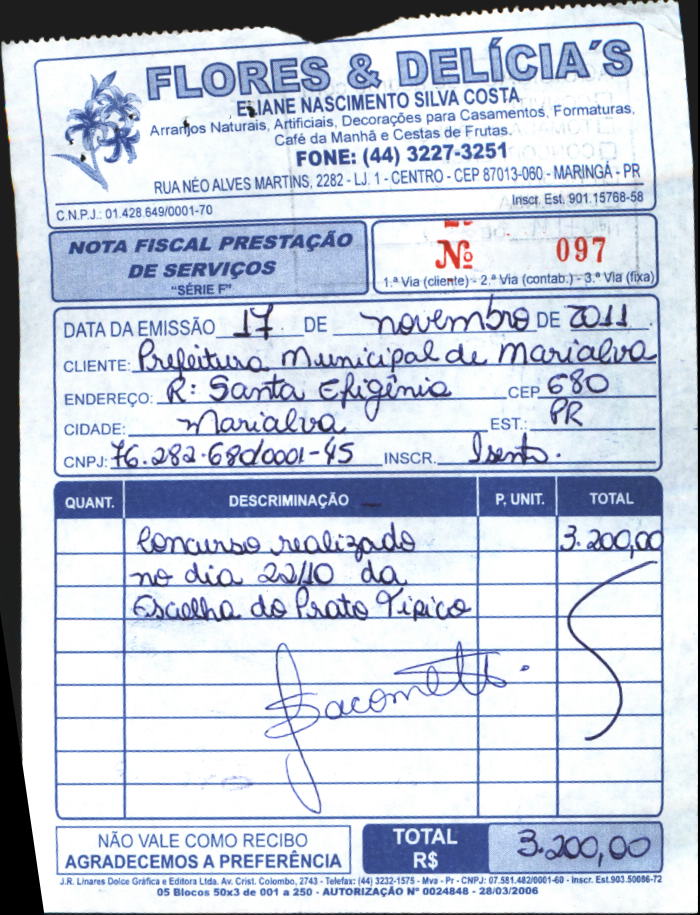 FLORES & DELÍCIA´S
ELIANE NASCIMENTO SILVA COSTA
Arranjos Naturais, Artificiais, Decorações para Casamentos, Formaturas,
Café da Manhã e Cestas de Frutas.
FONE: (44) 3227-3251
RUA NÉO ALVES MARTINS, 2282 - LJ. 1 - CENTRO - CEP 87013-060 - MARINGÁ - PR
C.N.P.J.: 01.428.649/0001-70 Inscr. Est. 901.15768-58
NOTA FISCAL PRESTAÇÃO
DE SERVIÇOS
"SÉRIE F"
Nº 097
1.ª Via (cliente) - 2.ª Via (contab.) - 3.ª Via (fixa)
DATA DA EMISSÃO 17 DE novembro DE 2011
CLIENTE: Prefeitura Municipal de Marialva
ENDEREÇO: R: Santa Efigênia CEP 680
CIDADE: Marialva EST.: PR
CNPJ: 76.282.680/0001-45 INSCR. Isento.
QUANT. DESCRIMINAÇÃO P. UNIT. TOTAL
Concurso realizado 3.200,00
no dia 22/10 da
Escolha do Prato Tipico
Giacometti
NÃO VALE COMO RECIBO
AGRADECEMOS A PREFERÊNCIA
TOTAL
R$ 3.200,00
J.R. Linares Dolce Gráfica e Editora Ltda. Av. Crist. Colombo, 2743 - Telefax: (44) 3232-1575 - Mva - Pr - CNPJ: 07.581.482/0001-60 - Inscr. Est.903.50086-72
05 Blocos 50x3 de 001 a 250 - AUTORIZAÇÃO Nº 0024848 - 28/03/2006